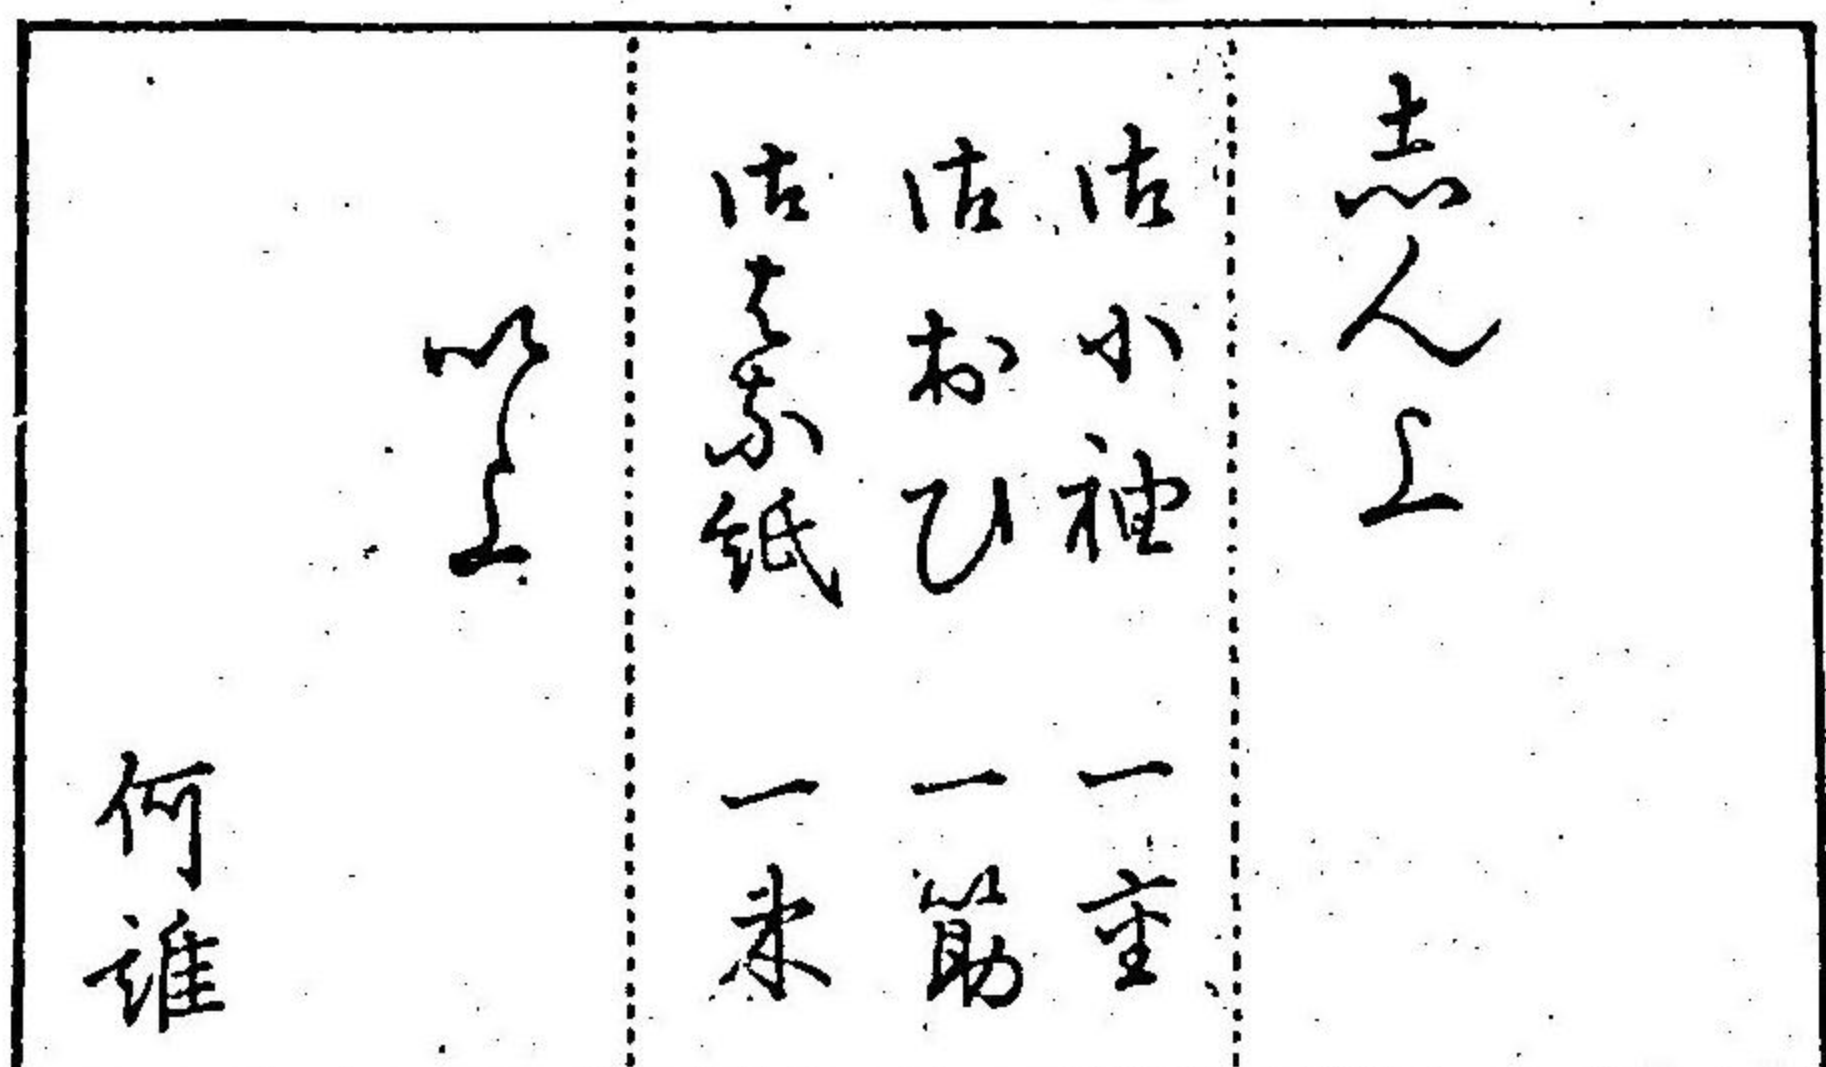 志ん上
御小袖 一重
御おひ 一筋
御はな紙 一束
以上
何誰